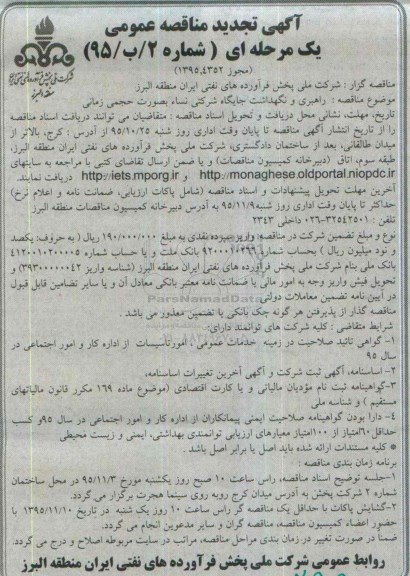 آگهی تجدید مناقصه عمومی
یک مرحله ای ( شماره ۲/ب/۹۵)
(مجوز ۱۳۹۵،۴۳۵۲)
شرکت ملی پخش فرآورده های نفتی ایران
منطقه البرز
مناقصه گزار : شرکت ملی پخش فرآورده های نفتی ایران منطقه البرز
موضوع مناقصه : راهبری و نگهداشت جایگاه شرکتی نساء بصورت حجمی زمانی
تاریخ، مهلت، نشانی محل دریافت و تحویل اسناد مناقصه : متقاضیان می توانند دریافت اسناد مناقصه
را از تاریخ انتشار آگهی مناقصه تا پایان وقت اداری روز شنبه ۹۵/۱۰/۲۵ از آدرس : کرج، بالاتر از
میدان طالقانی، بعد از ساختمان دادگستری، شرکت ملی پخش فرآورده های نفتی ایران منطقه البرز،
طبقه سوم، اتاق (دبیرخانه کمیسیون مناقصات) و یا ضمن ارسال تقاضای کتبی با مراجعه به سایتهای
http://monaghese.oldportal.niopdc.ir و http://iets.mporg.ir دریافت نمایند.
آخرین مهلت تحویل پیشنهادات و اسناد مناقصه (شامل پاکات ارزیابی، ضمانت نامه و اعلام نرخ)
حداکثر تا پایان وقت اداری روز شنبه ۹۵/۱۱/۹ به آدرس دبیرخانه کمیسیون مناقصات منطقه البرز
تلفن : ۳۲۵۴۲۵۰۱-۰۲۶ داخلی ۲۳۴۳
نوع و مبلغ تضمین شرکت در مناقصه: واریز سپرده نقدی به مبلغ ۱۹۰/۰۰۰/۰۰۰ ریال ( به حروف: یکصد
و نود میلیون ریال ) بحساب شماره بانک ملت و یا حساب شماره ۴۱۲۰۰۱۰۲۰۰۰۰۵
بانک ملی بنام شرکت ملی پخش فرآورده های نفتی ایران منطقه البرز (شناسه واریز )
و تحویل فیش واریز وجه به امور مالی یا ضمانت نامه معتبر بانکی معادل آن و یا سایر تضامین قابل قبول
در آیین نامه تضمین معاملات دولتی
مناقصه گذار از پذیرفتن هر گونه چک بانکی یا تضمین معذور می باشد .
شرایط متقاضی : کلیه شرکت های توانمند دارای:
۱- گواهی تائید صلاحیت در زمینه خدمات عمومی ، امورتاسیسات از اداره کار و امور اجتماعی در
سال ۹۵
۲- اساسنامه، آگهی ثبت شرکت و آگهی آخرین تغییرات اساسنامه،
۳-گواهینامه ثبت نام مؤدیان مالیاتی و یا کارت اقتصادی (موضوع ماده ۱۶۹ مکرر قانون مالیاتهای
مستقیم ) و شناسه ملی
۴- دارا بودن گواهینامه صلاحیت ایمنی پیمانکاران از اداره کار و امور اجتماعی در سال ۹۵و کسب
حداقل ۶۰امتیاز از ۱۰۰امتیاز معیارهای ارزیابی توانمندی بهداشتی، ایمنی و زیست محیطی
* کلیه مستندات ارائه شده باید اصل یا برابر اصل باشد .
برنامه زمان بندی مناقصه :
۱-جلسه توضیح اسناد مناقصه، راس ساعت ۱۰ صبح روز یکشنبه مورخ ۹۵/۱۱/۳ در محل ساختمان
شماره ۲ شرکت پخش به آدرس میدان کرج روبه روی سینما هجرت برگزار می گردد.
۲-گشایش پاکات با حداقل یک مناقصه گر راس ساعت ۱۰ روز یک شنبه در تاریخ ۱۳۹۵/۱۱/۱۰ با
حضور اعضاء کمیسیون مناقصه، مناقصه گران و سایر مدعوین انجام می گردد.
ضمنا در صورت تغییر در زمان بندی مراحل مناقصه، مراتب در سایت مربوطه اصلاح و درج می گردد.
روابط عمومی شرکت ملی پخش فرآورده های نفتی ایران منطقه البرز